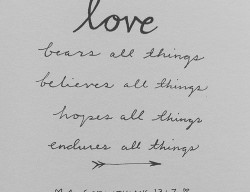 love
bears all things
believes all things
hopes all things
endures all things